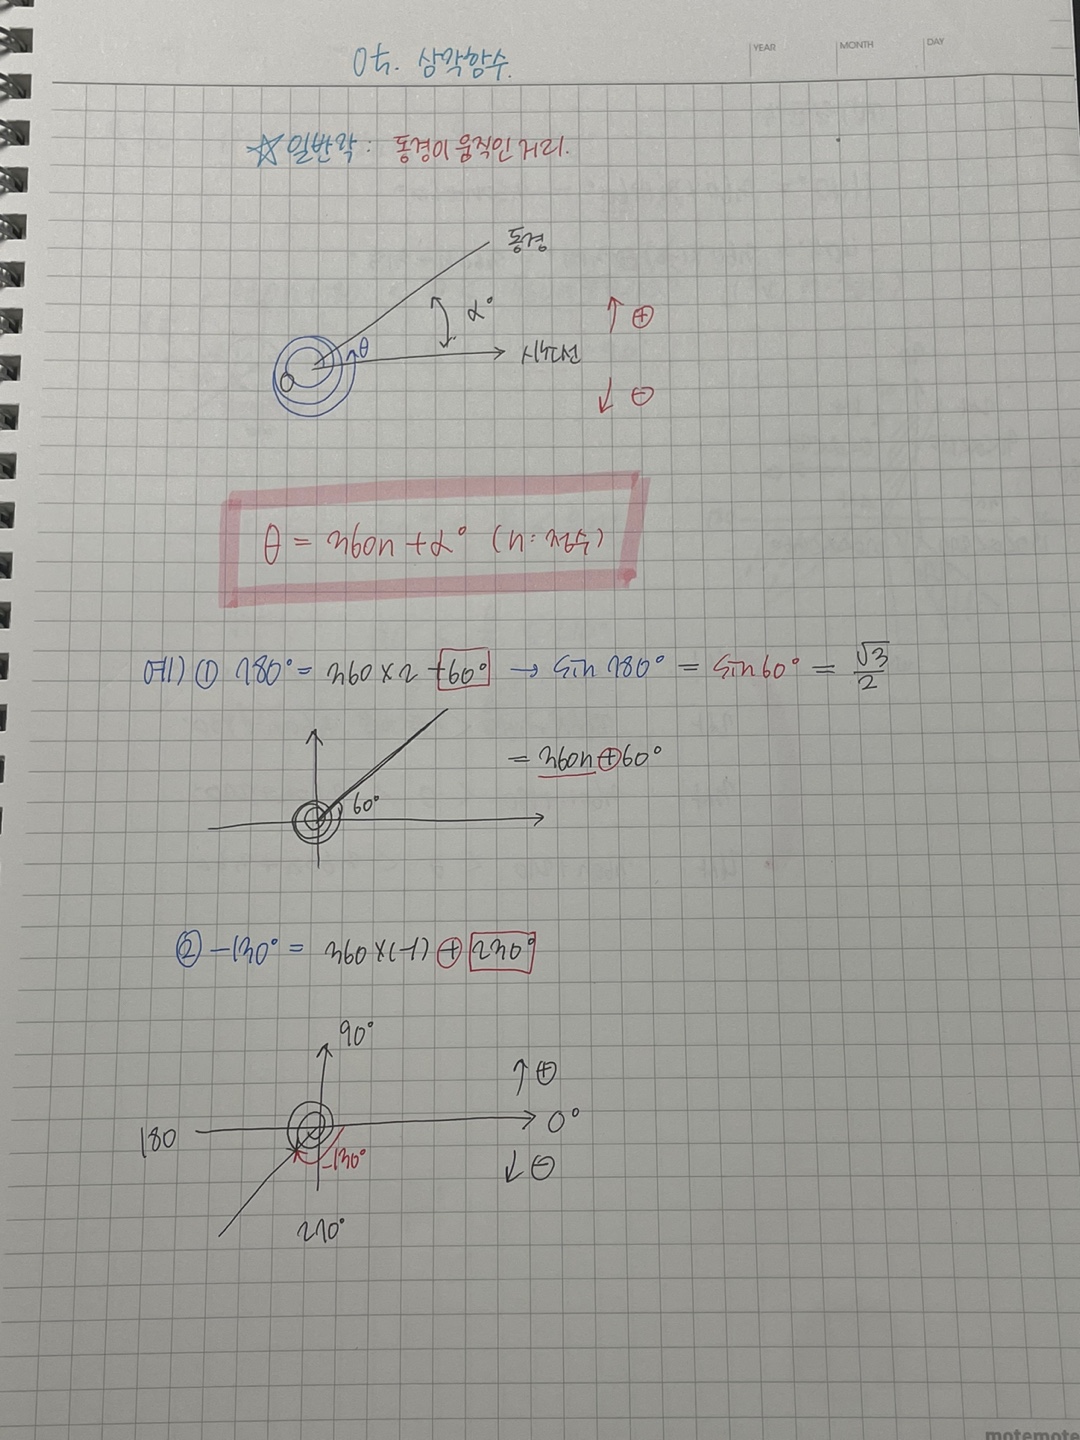 YEAR MONTH DAY
04. 삼각함수.
☆일반각: 동경이 움직인 거리.
동경
α°
θ
↑ ⊕
O
시초선
↓ ⊖
θ = 360n + α° (n: 정수)
예1) ① 780° = 360 × 2 + 60° → sin 780° = sin 60° = √3/2
= 360n ⊕ 60°
60°
② -130° = 360 × (-1) ⊕ 230°
90°
↑ ⊕
180
0°
-130°
↓ ⊖
270°
motemote